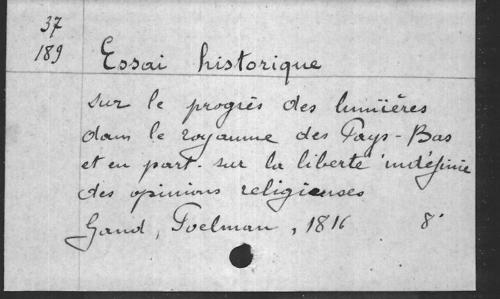 37
189
Essai historique
sur le progrès des lumières
dans le royaume des Pays-Bas
et en part. sur la liberté indéfinie
des opinions religieuses
Gand, Poelman, 1816 8°